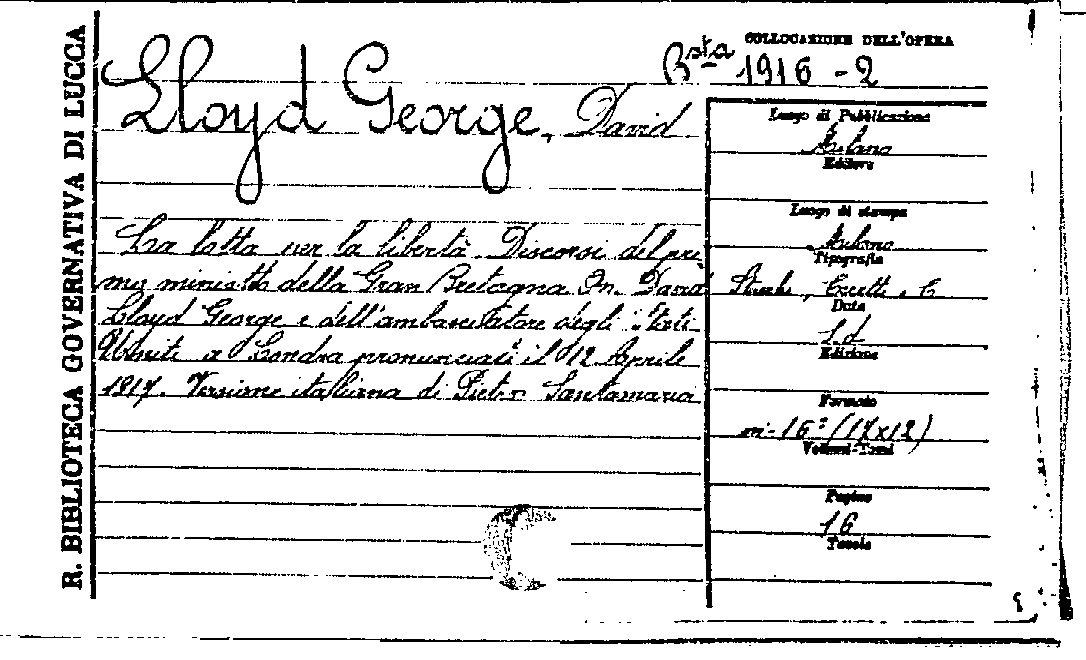 R. BIBLIOTECA GOVERNATIVA DI LUCCA
COLLOCAZIONE DELL'OPERA
Bsta 1916 - 2
Lloyd George, David
La lotta per la libertà. Discorsi del pri
mo ministro della Gran Bretagna On. David
Lloyd George e dell'ambasciatore degli Stati
Uniti a Londra pronunciati il 12 Aprile
1917. Versione italiana di Pietro Santamaria
Luogo di Pubblicazione
Milano
Editore
Luogo di stampa
Milano
Tipografia
Data
s.d
Edizione
Formato
in-16° (17x12)
Volumi-Tomi
Pagine
16
Tavole